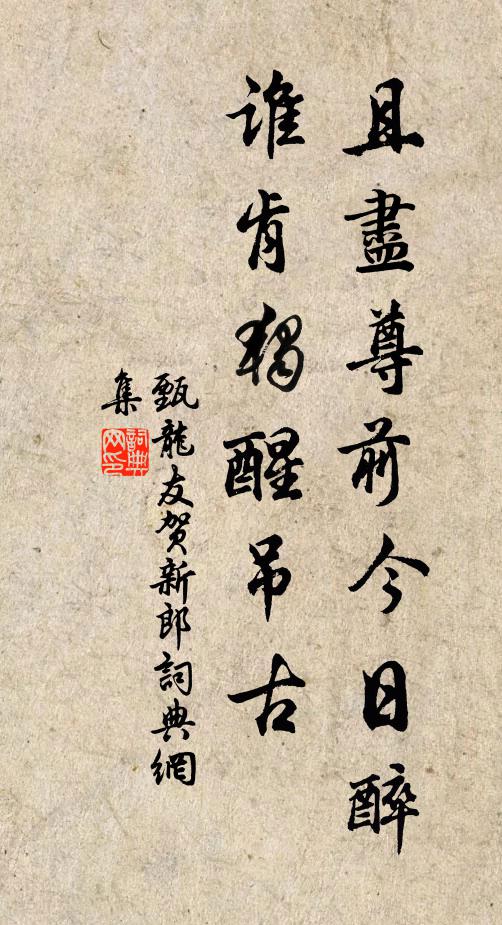 且盡尊前今日醉
谁肯獨醒吊古
甄龍友賀新郎詞典網
集
詞典
网印